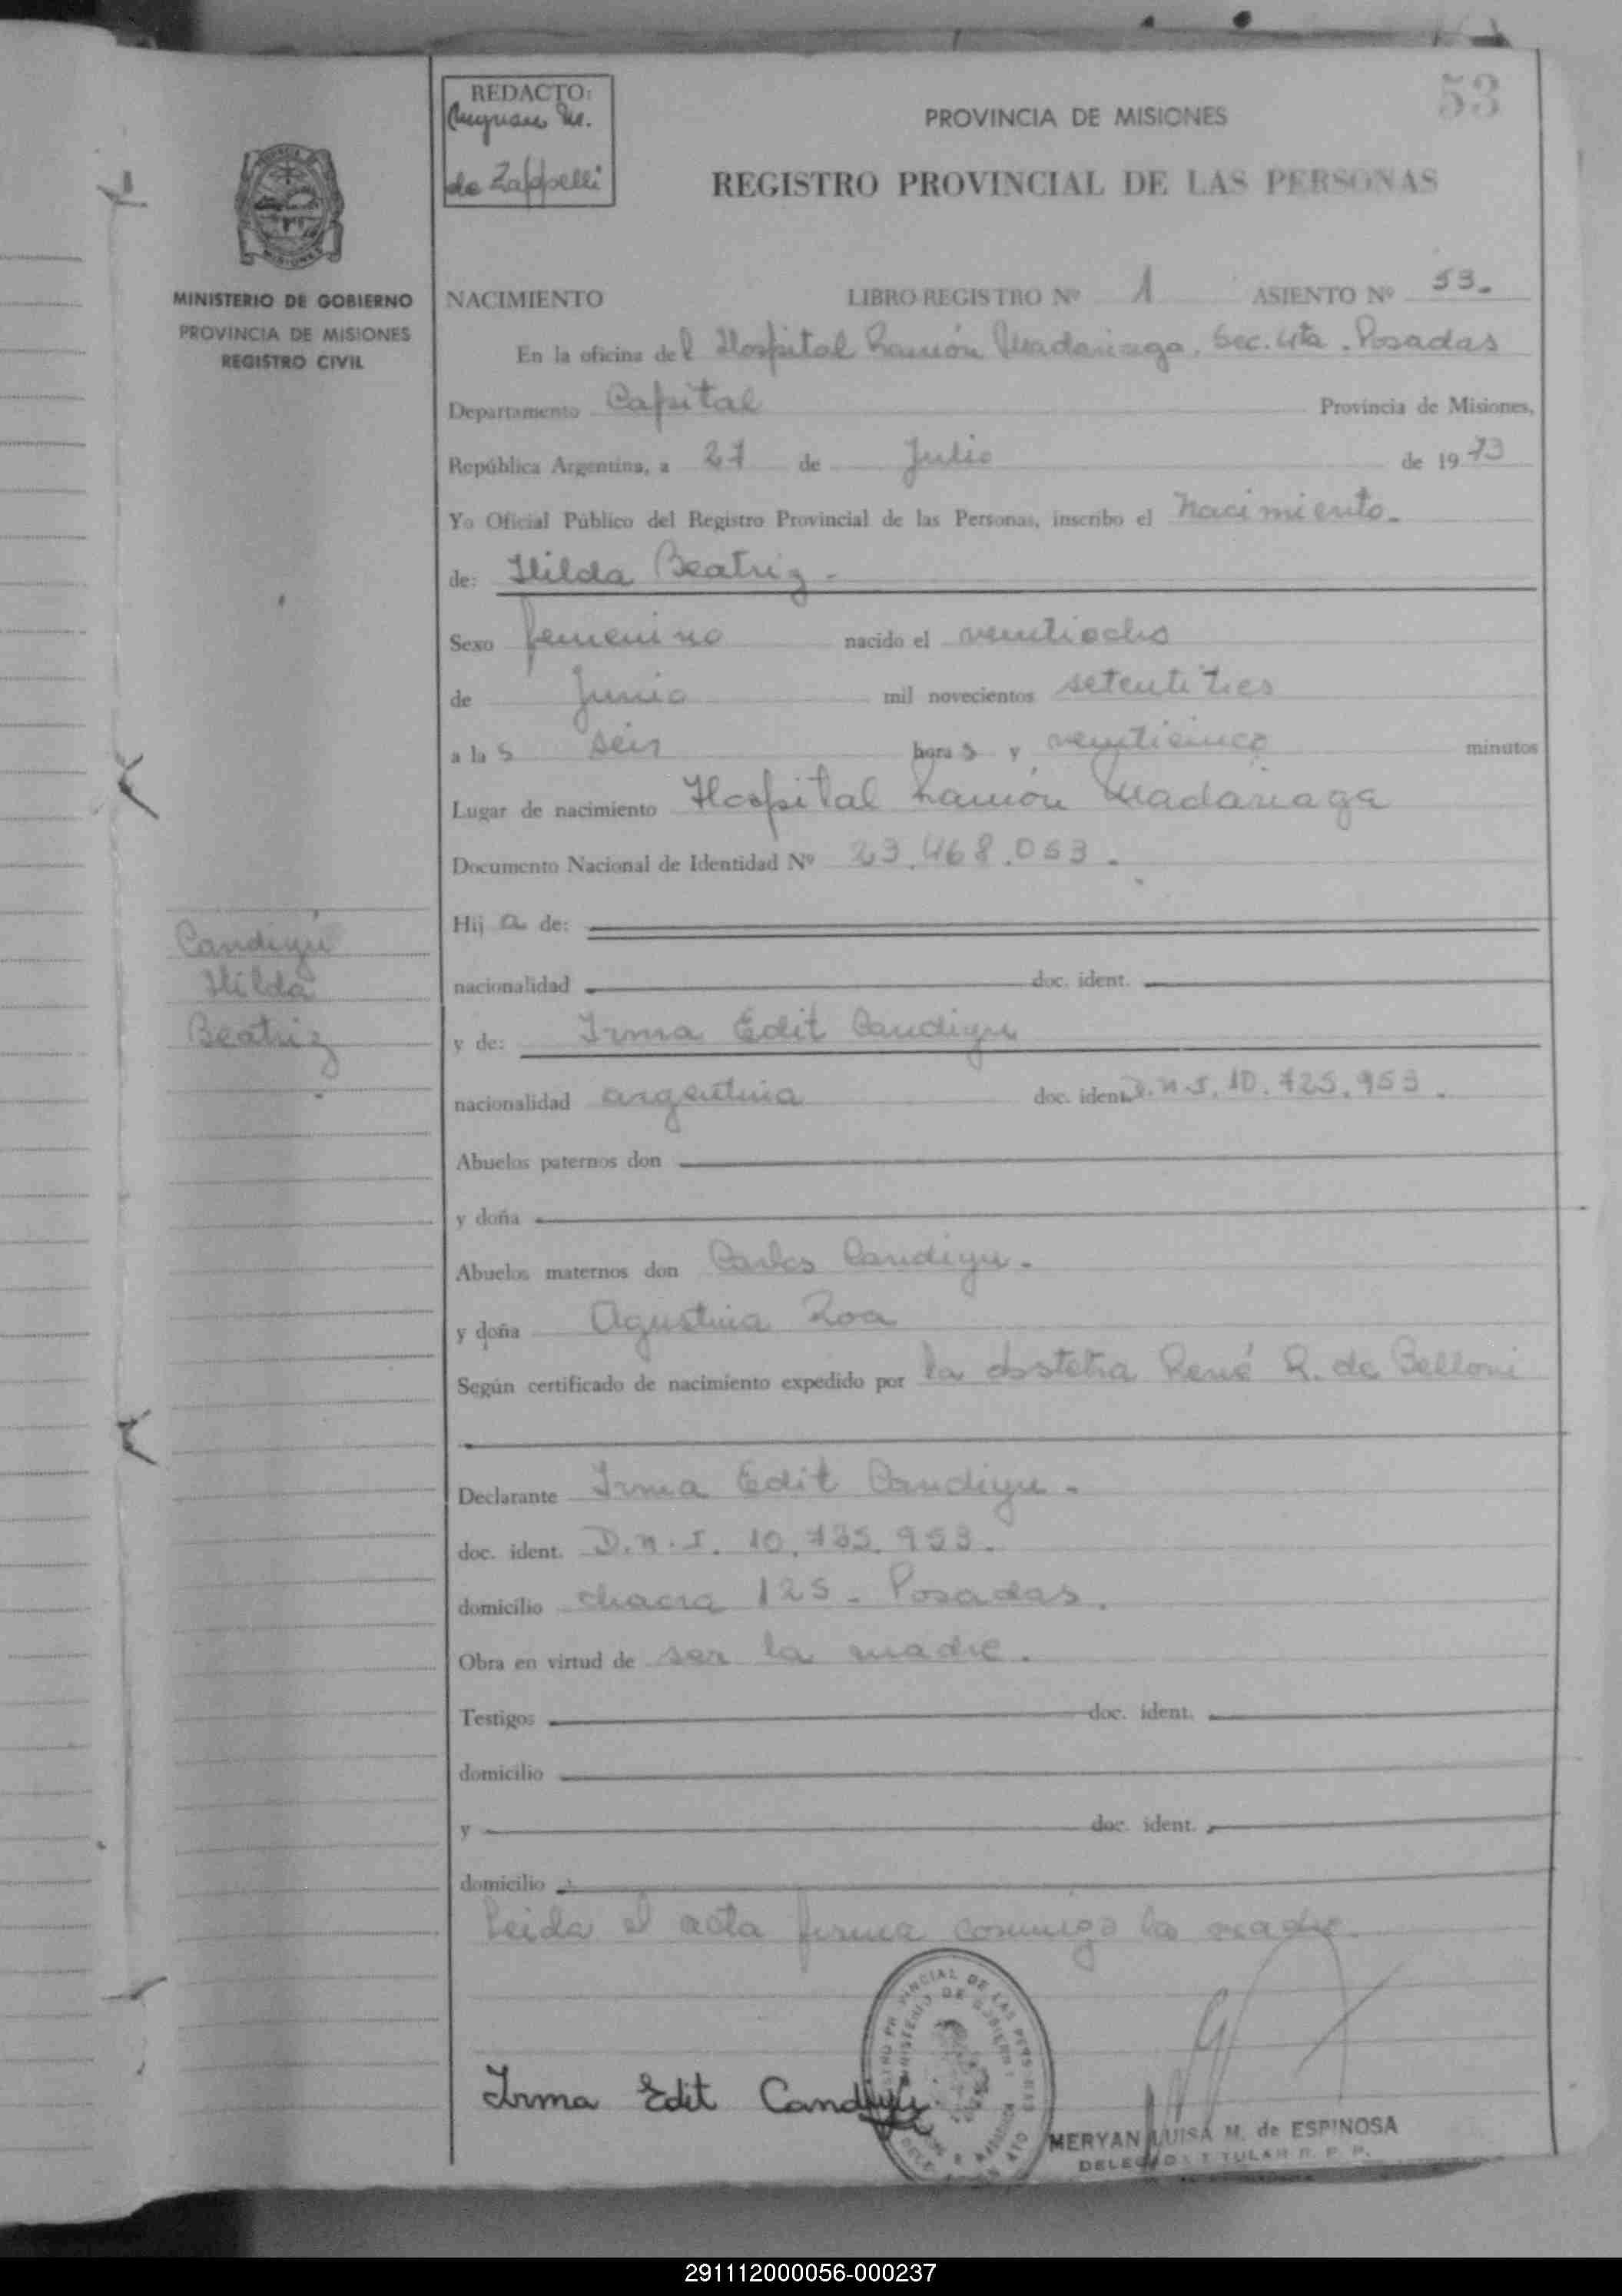 53
REDACTO:
de Zappelli
PROVINCIA DE MISIONES
REGISTRO PROVINCIAL DE LAS PERSONAS
MINISTERIO DE GOBIERNO
PROVINCIA DE MISIONES
REGISTRO CIVIL
NACIMIENTO LIBRO REGISTRO Nº 1 ASIENTO Nº 53.
En la oficina del Hospital Ramón Madariaga. Sec. 4ta. Posadas
Departamento Capital Provincia de Misiones,
República Argentina, a 27 de Julio de 1973
Yo Oficial Público del Registro Provincial de las Personas, inscribo el nacimiento.
de: Hilda Beatriz.
Sexo femenino nacido el veintiocho
de Junio mil novecientos setentitres
a las seis horas y veinticinco minutos
Lugar de nacimiento Hospital Ramón Madariaga
Documento Nacional de Identidad Nº 23.468.053.
Hija de:
nacionalidad doc. ident.
Candiyú
Hilda
Beatriz
y de: Irma Edit Candiyu
nacionalidad argentina doc. ident. D.N.I. 10.725.953.
Abuelos paternos don
y doña
Abuelos maternos don Carlos Candiyu.
y doña Agustina Roa
Según certificado de nacimiento expedido por la obstetra René R. de Belloni
Declarante Irma Edit Candiyu.
doc. ident. D.N.I. 10.735.953.
domicilio chacra 125 - Posadas.
Obra en virtud de ser la madre.
Testigos doc. ident.
domicilio
y doc. ident.
domicilio
Leida el acta firma conmigo la madre.
Irma Edit Candiyu
MERYAN LUISA M. de ESPINOSA
DELEGADA TITULAR R. P. P.
291112000056-000237